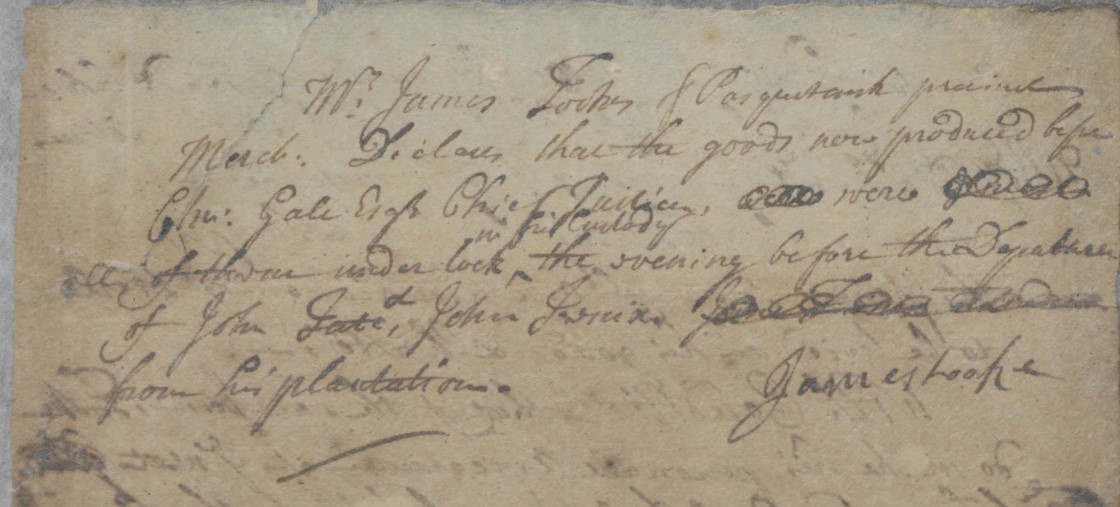 Mr. James Tookes of Pasquotank precinct
Merch: Declares that the goods now produced before
Chr: Gale Esqr. Chief Justice, were
in his Custody
all of them under lock ^ the evening before the Departure
of John & John
from his plantation.
James tooke